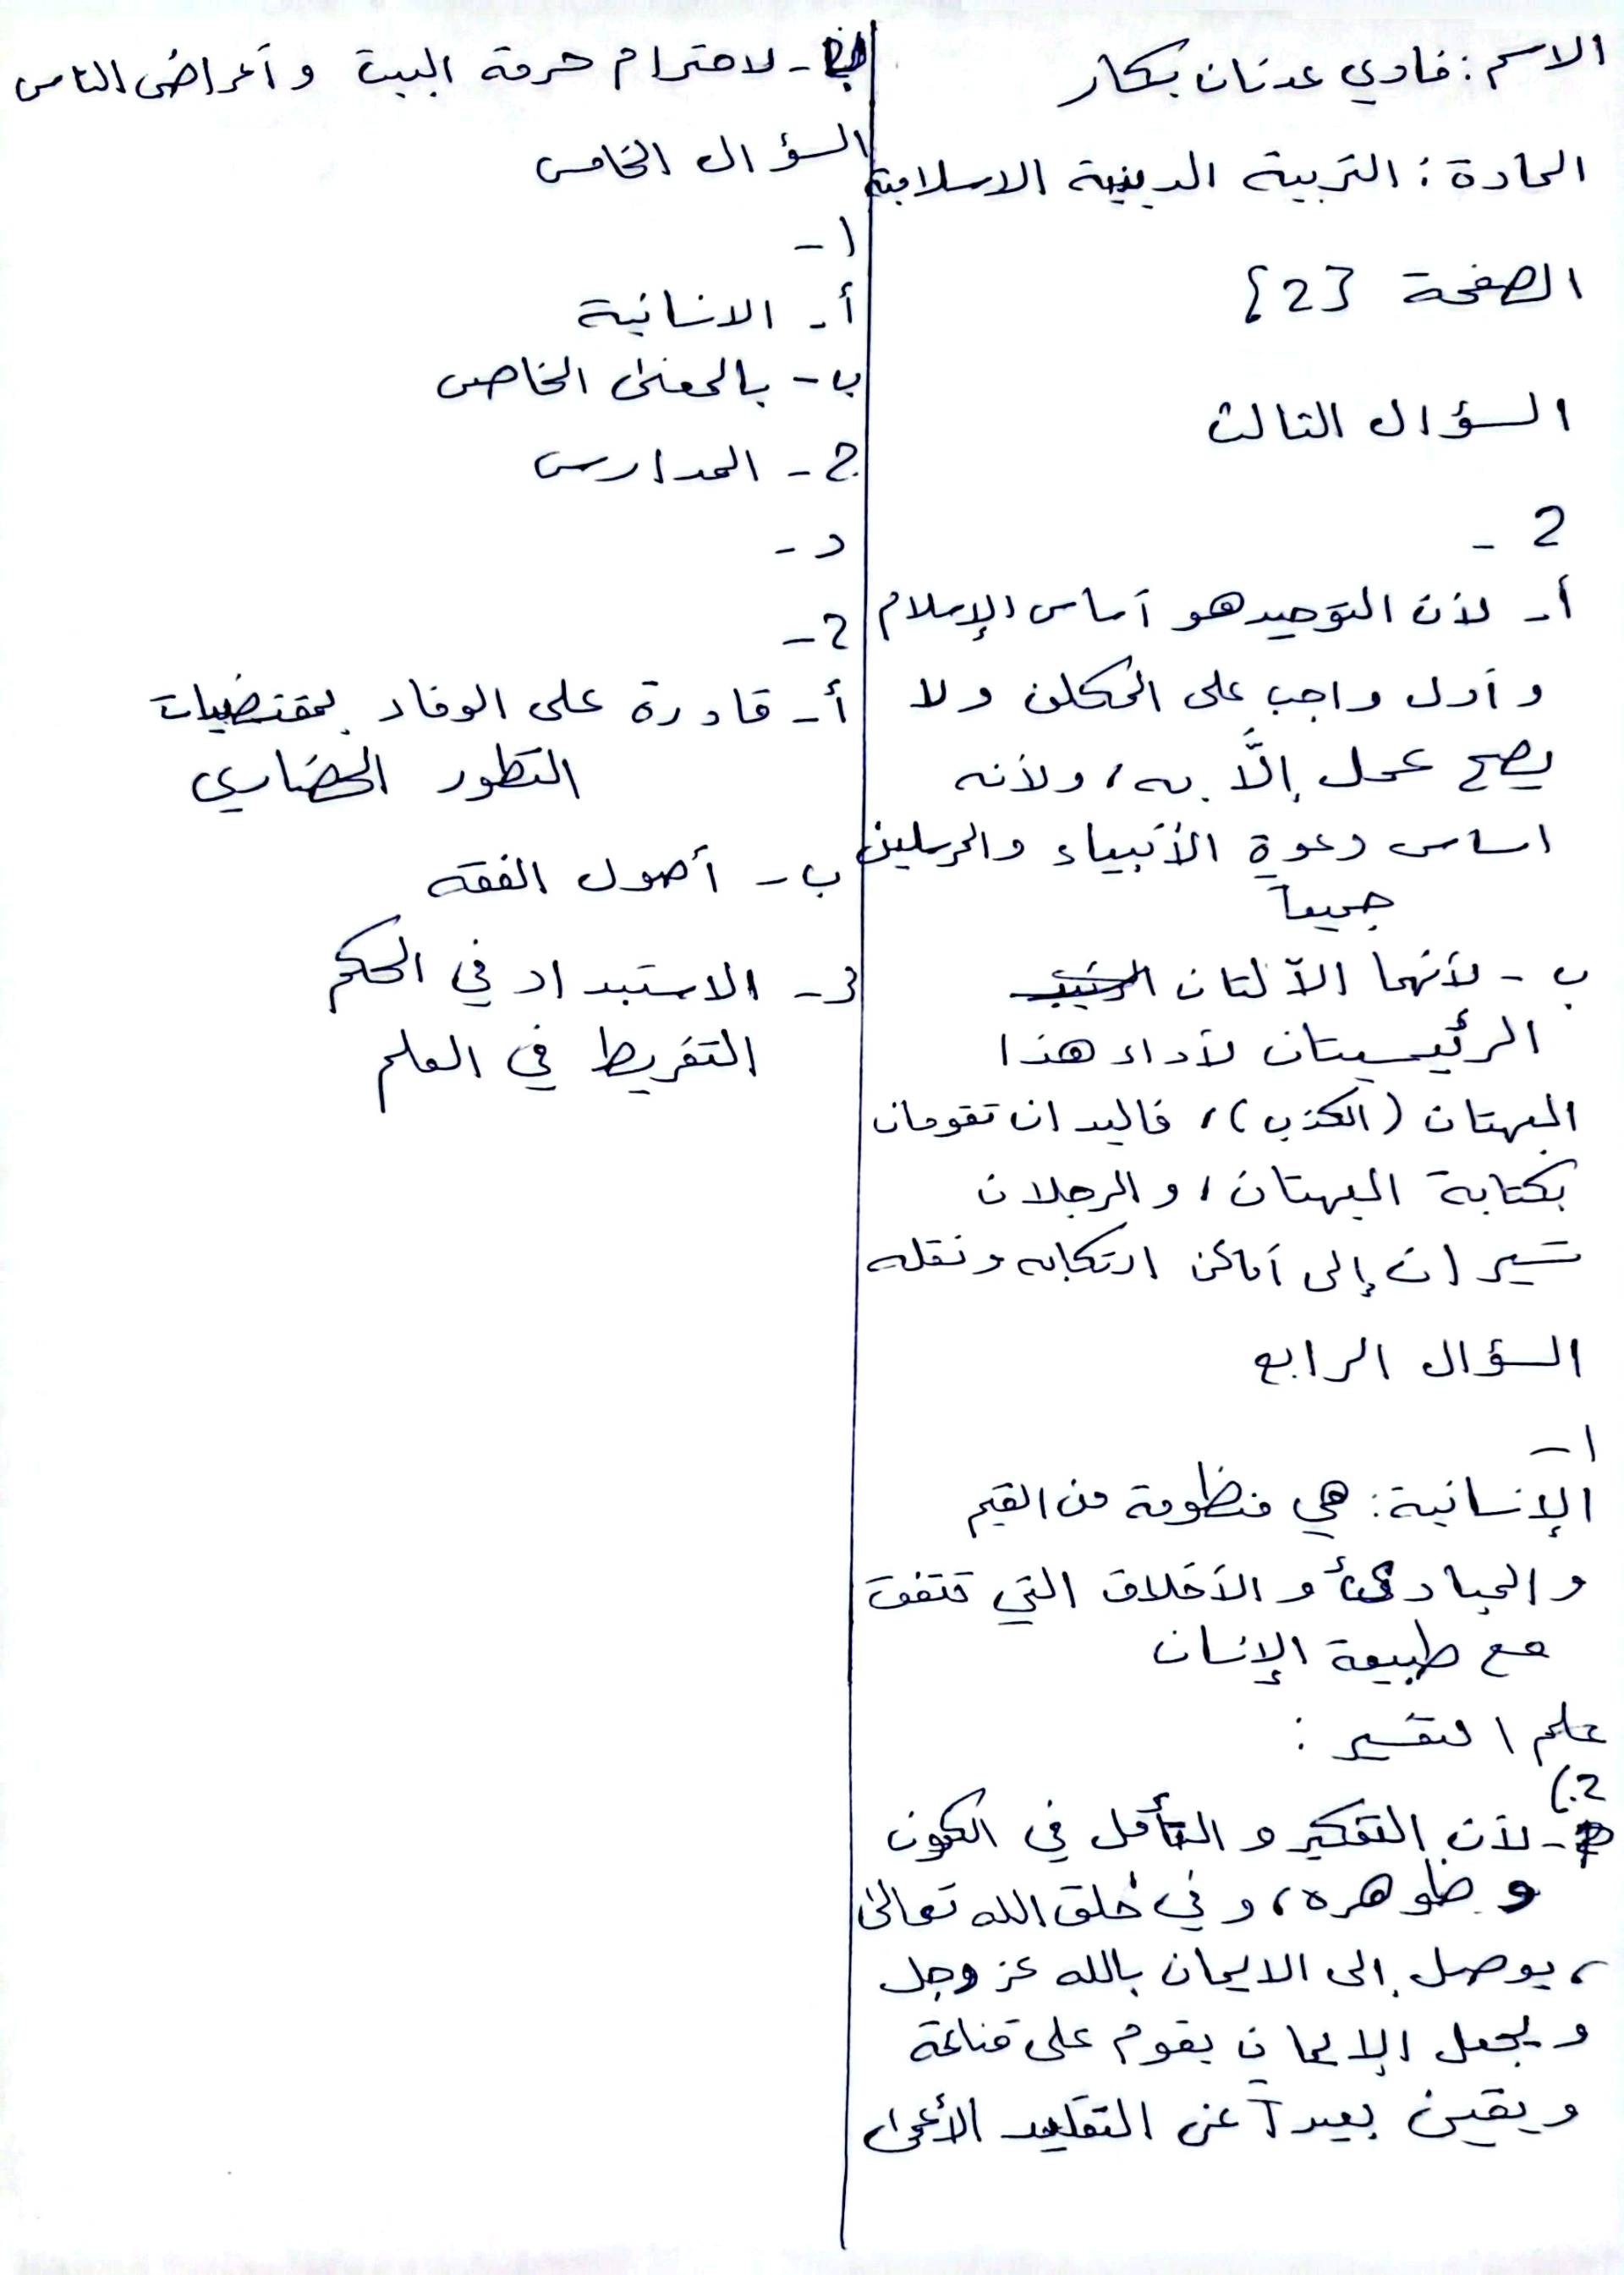 الاسم: فادي عدنان بكار
المادة: التربية الدينية الاسلامية
الصفحة {2}
السؤال الثالث
2 -
أ - لأن التوحيد هو أساس الإسلام
و أول واجب على المكلف ولا
يصح عمل إلَّا به، ولأنه
اساس دعوة الأنبياء والمرسلين
جميعاً
ب - لأنهما الآلتان
الرئيسيتان لأداء هذا
البهتان (الكذب)، فاليدان تقومان
بكتابة البهتان، والرجلان
تسيران إلى أماكن ارتكابه ونقله
السؤال الرابع
1 -
الإنسانية: هي منظومة من القيم
و المبادئ و الأخلاق التي تتفق
مع طبيعة الإنسان
علم التفسير :
2.)
- لأن التفكير و التأمل في الكون
و ظوهره، و في خلق الله تعالى
، يوصل إلى الايمان بالله عز وجل
و يجعل الإيمان يقوم على قناعة
و يقين بعيداً عن التقليد الأعمى
ب - لاحترام حرمة البيت و أعراض الناس
السؤال الخامس
1 -
أ - الانسانية
ب - بالمعنى الخاص
2 - المدارس
د -
2 -
أ - قادرة على الوفاء بمقتضيات
التطور الحضاري
ب - أصول الفقه
3 - الاستبداد في الحكم
التفريط في العلم